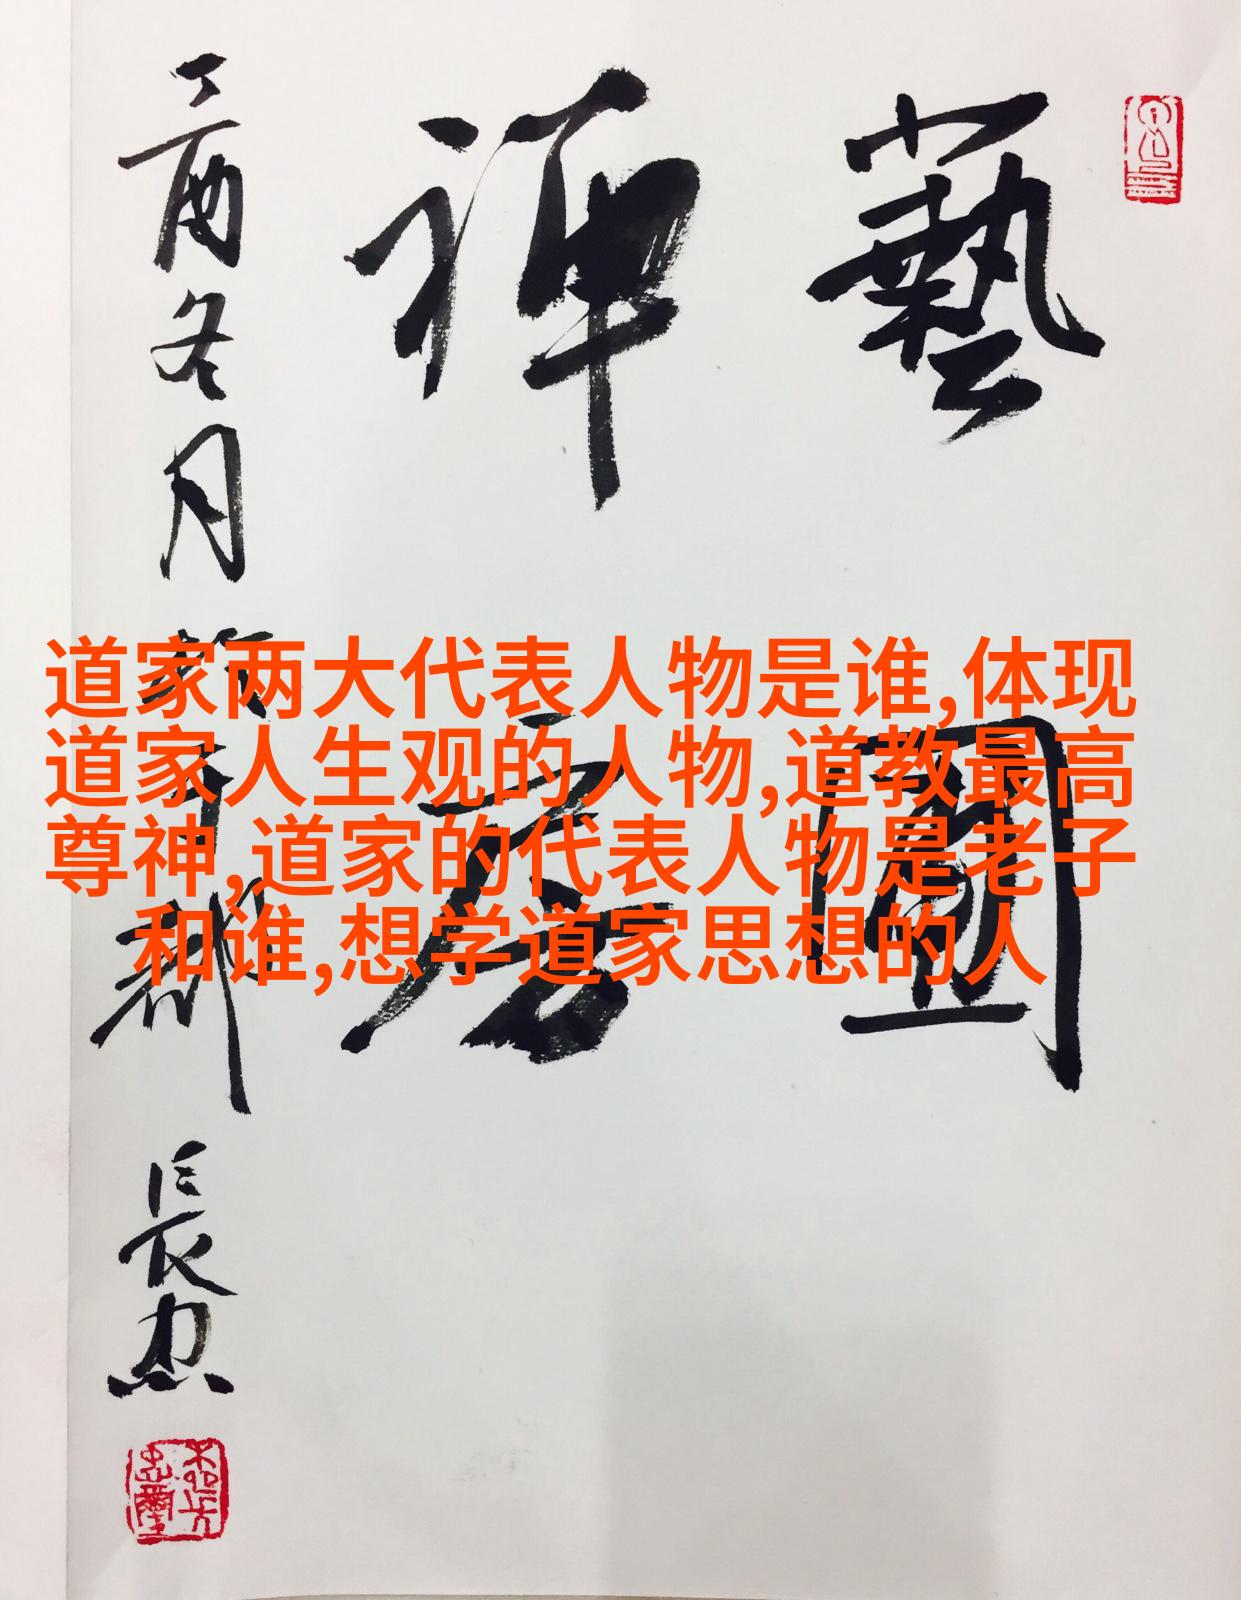 藝
禪
丁酉冬月
道家两大代表人物是谁,体现
道家人生观的人物,道教最高
尊神,道家的代表人物是老子
和谁,想学道家思想的人